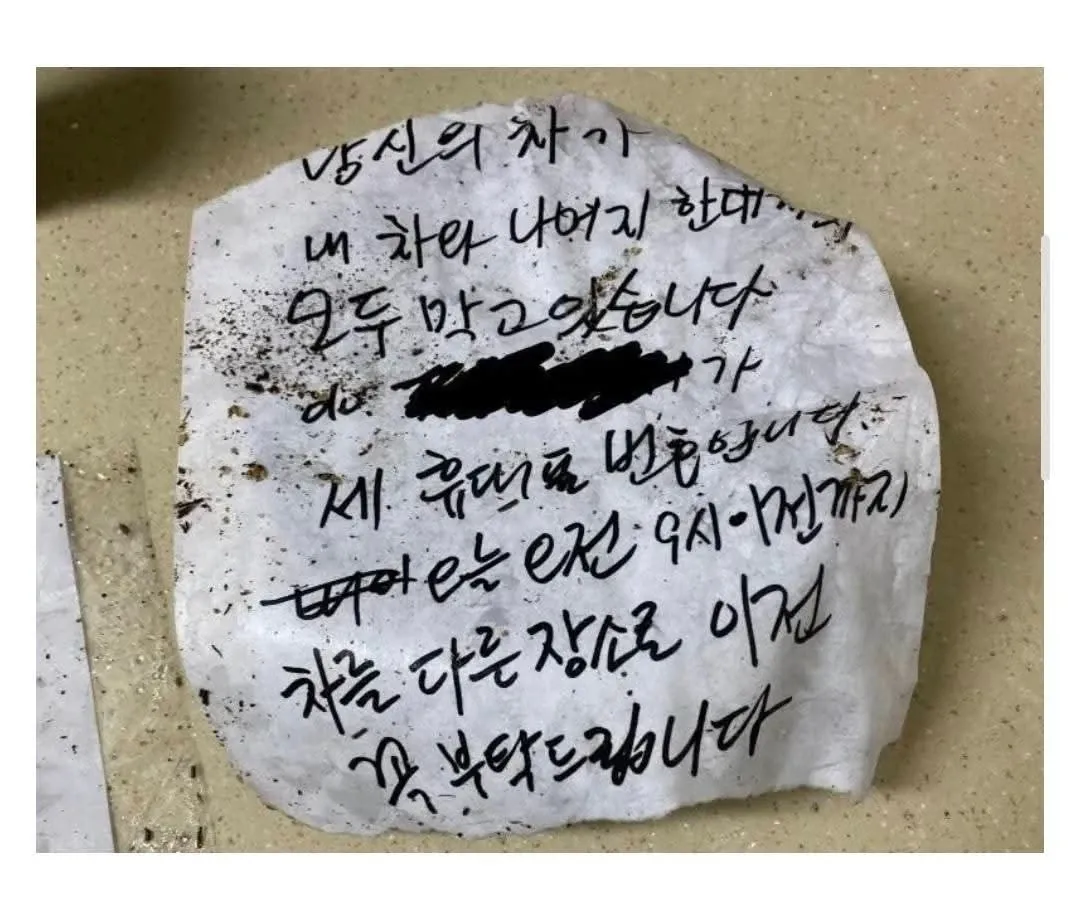 당신의 차가
내 차와 나머지 한대
모두 막고있습니다
가
세 휴대폰 번호입니다
오늘 오전 9시 이전까지
차를 다른 장소로 이전
꼭 부탁드립니다